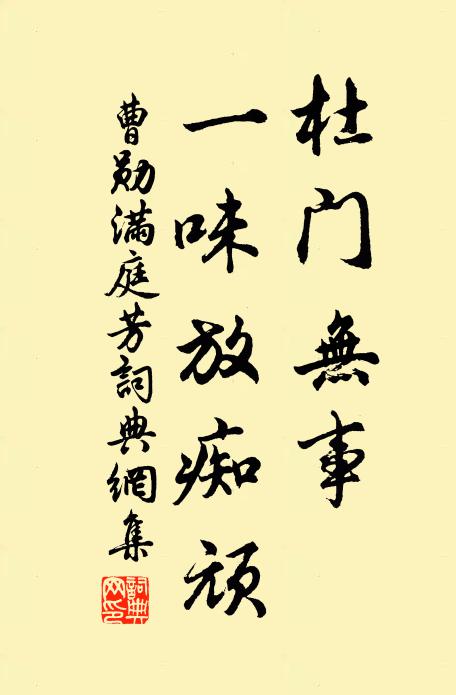 杜门無事
一味放痴顽
曹勋满庭芳詞典網集
詞典网印